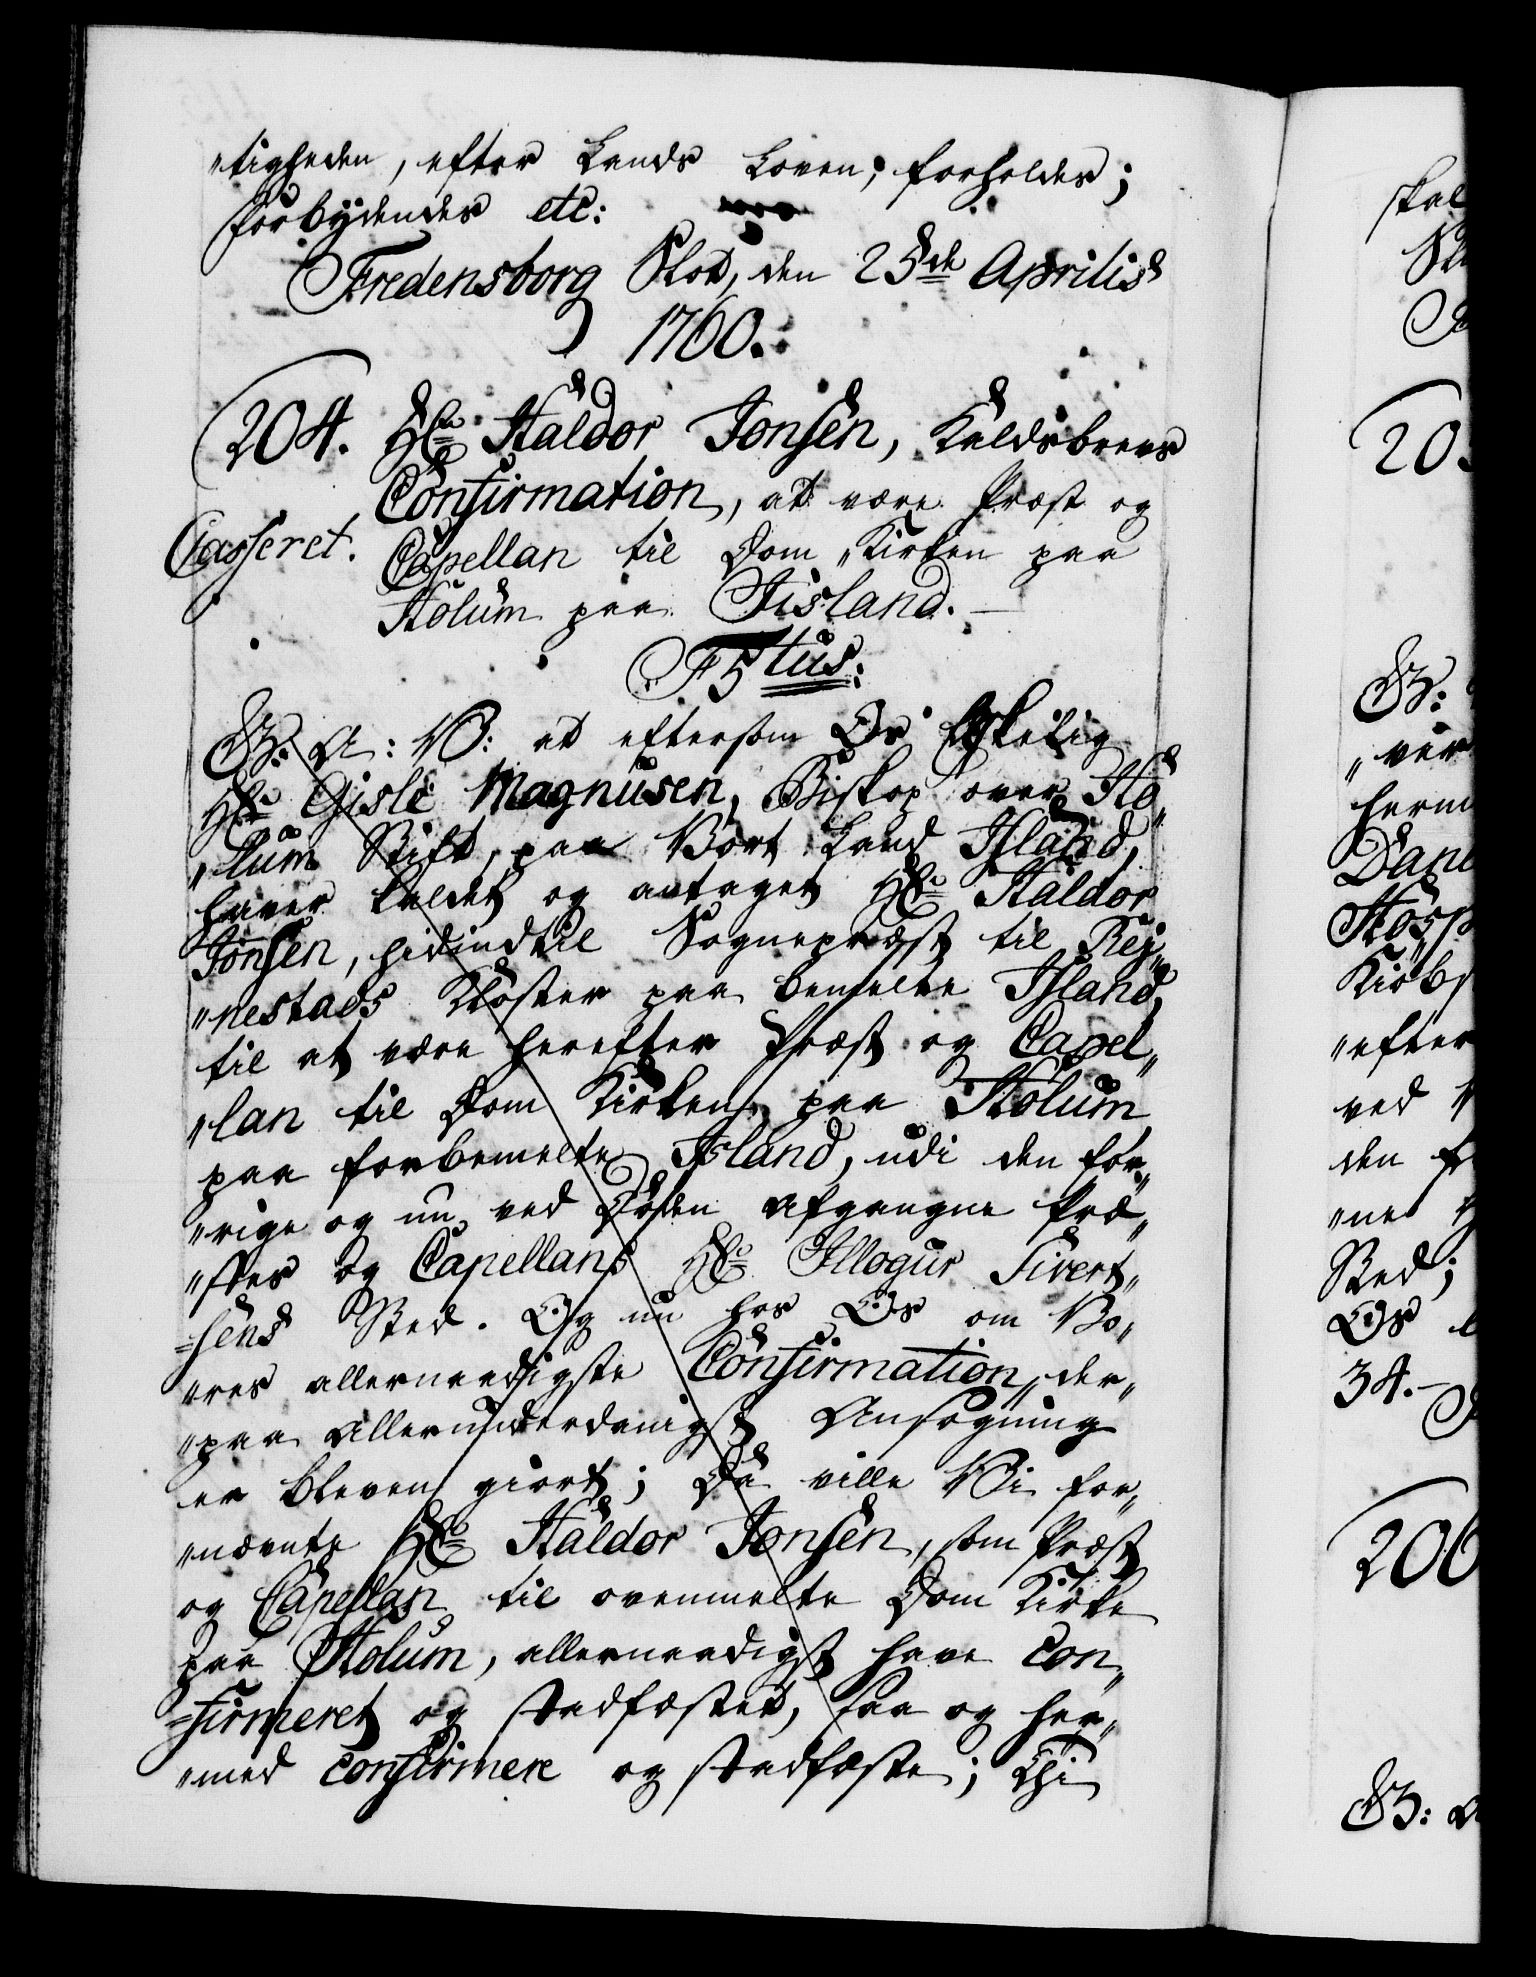 "tigheden, efter Lands Loven, forholder;
Forbydendes etc:
Fredensborg Slot, den 25de Aprilis
1760.
204. Hr Haldor Jonsen, Kaldsbrevs
Confirmation, at være Præst og
Casseret. Capellan til Dom-Kirken paa
Holum paa Iisland.
F5tus:
G: A: V: at eftersom Os Elskelig
Hr Gisle Magnusen, Biskop over Ho„
„lum Stift, paa Vort Land Island,
haver kaldet og antaget Hr Haldor
Jonsen, hidindtil Sognepræst til Rej„
„nestads Kloster paa bemelte Island,
til at være herefter Præst og Capel„
„lan til Dom Kirken paa Holum
paa forbemelte Island, udi den for„
„rige og nu ved Døden afgangne Præ„
„stes og Capellans Hr Illogur Sivert„
=sens Sted. Og nu hos Os om Vo„
„res allernaadigste Confirmation der„
„paa allerunderdanigst Ansøgning
er bleven giort; Da ville Vi for„
„nævnte Hr Haldor Jonsen, som Præst
og Capellan til ovenmelte Dom Kirke
paa Holum, allernaadigst have con„
=firmeret og stadfæstet, saa og her„
„med confirmere og stadfæste; Thi
skal
20
G:
„ver
herm
Dane
Hosp
Kiøbs
„efter
ved
den
„nes
Sted;
Os
34.-
206
G: A